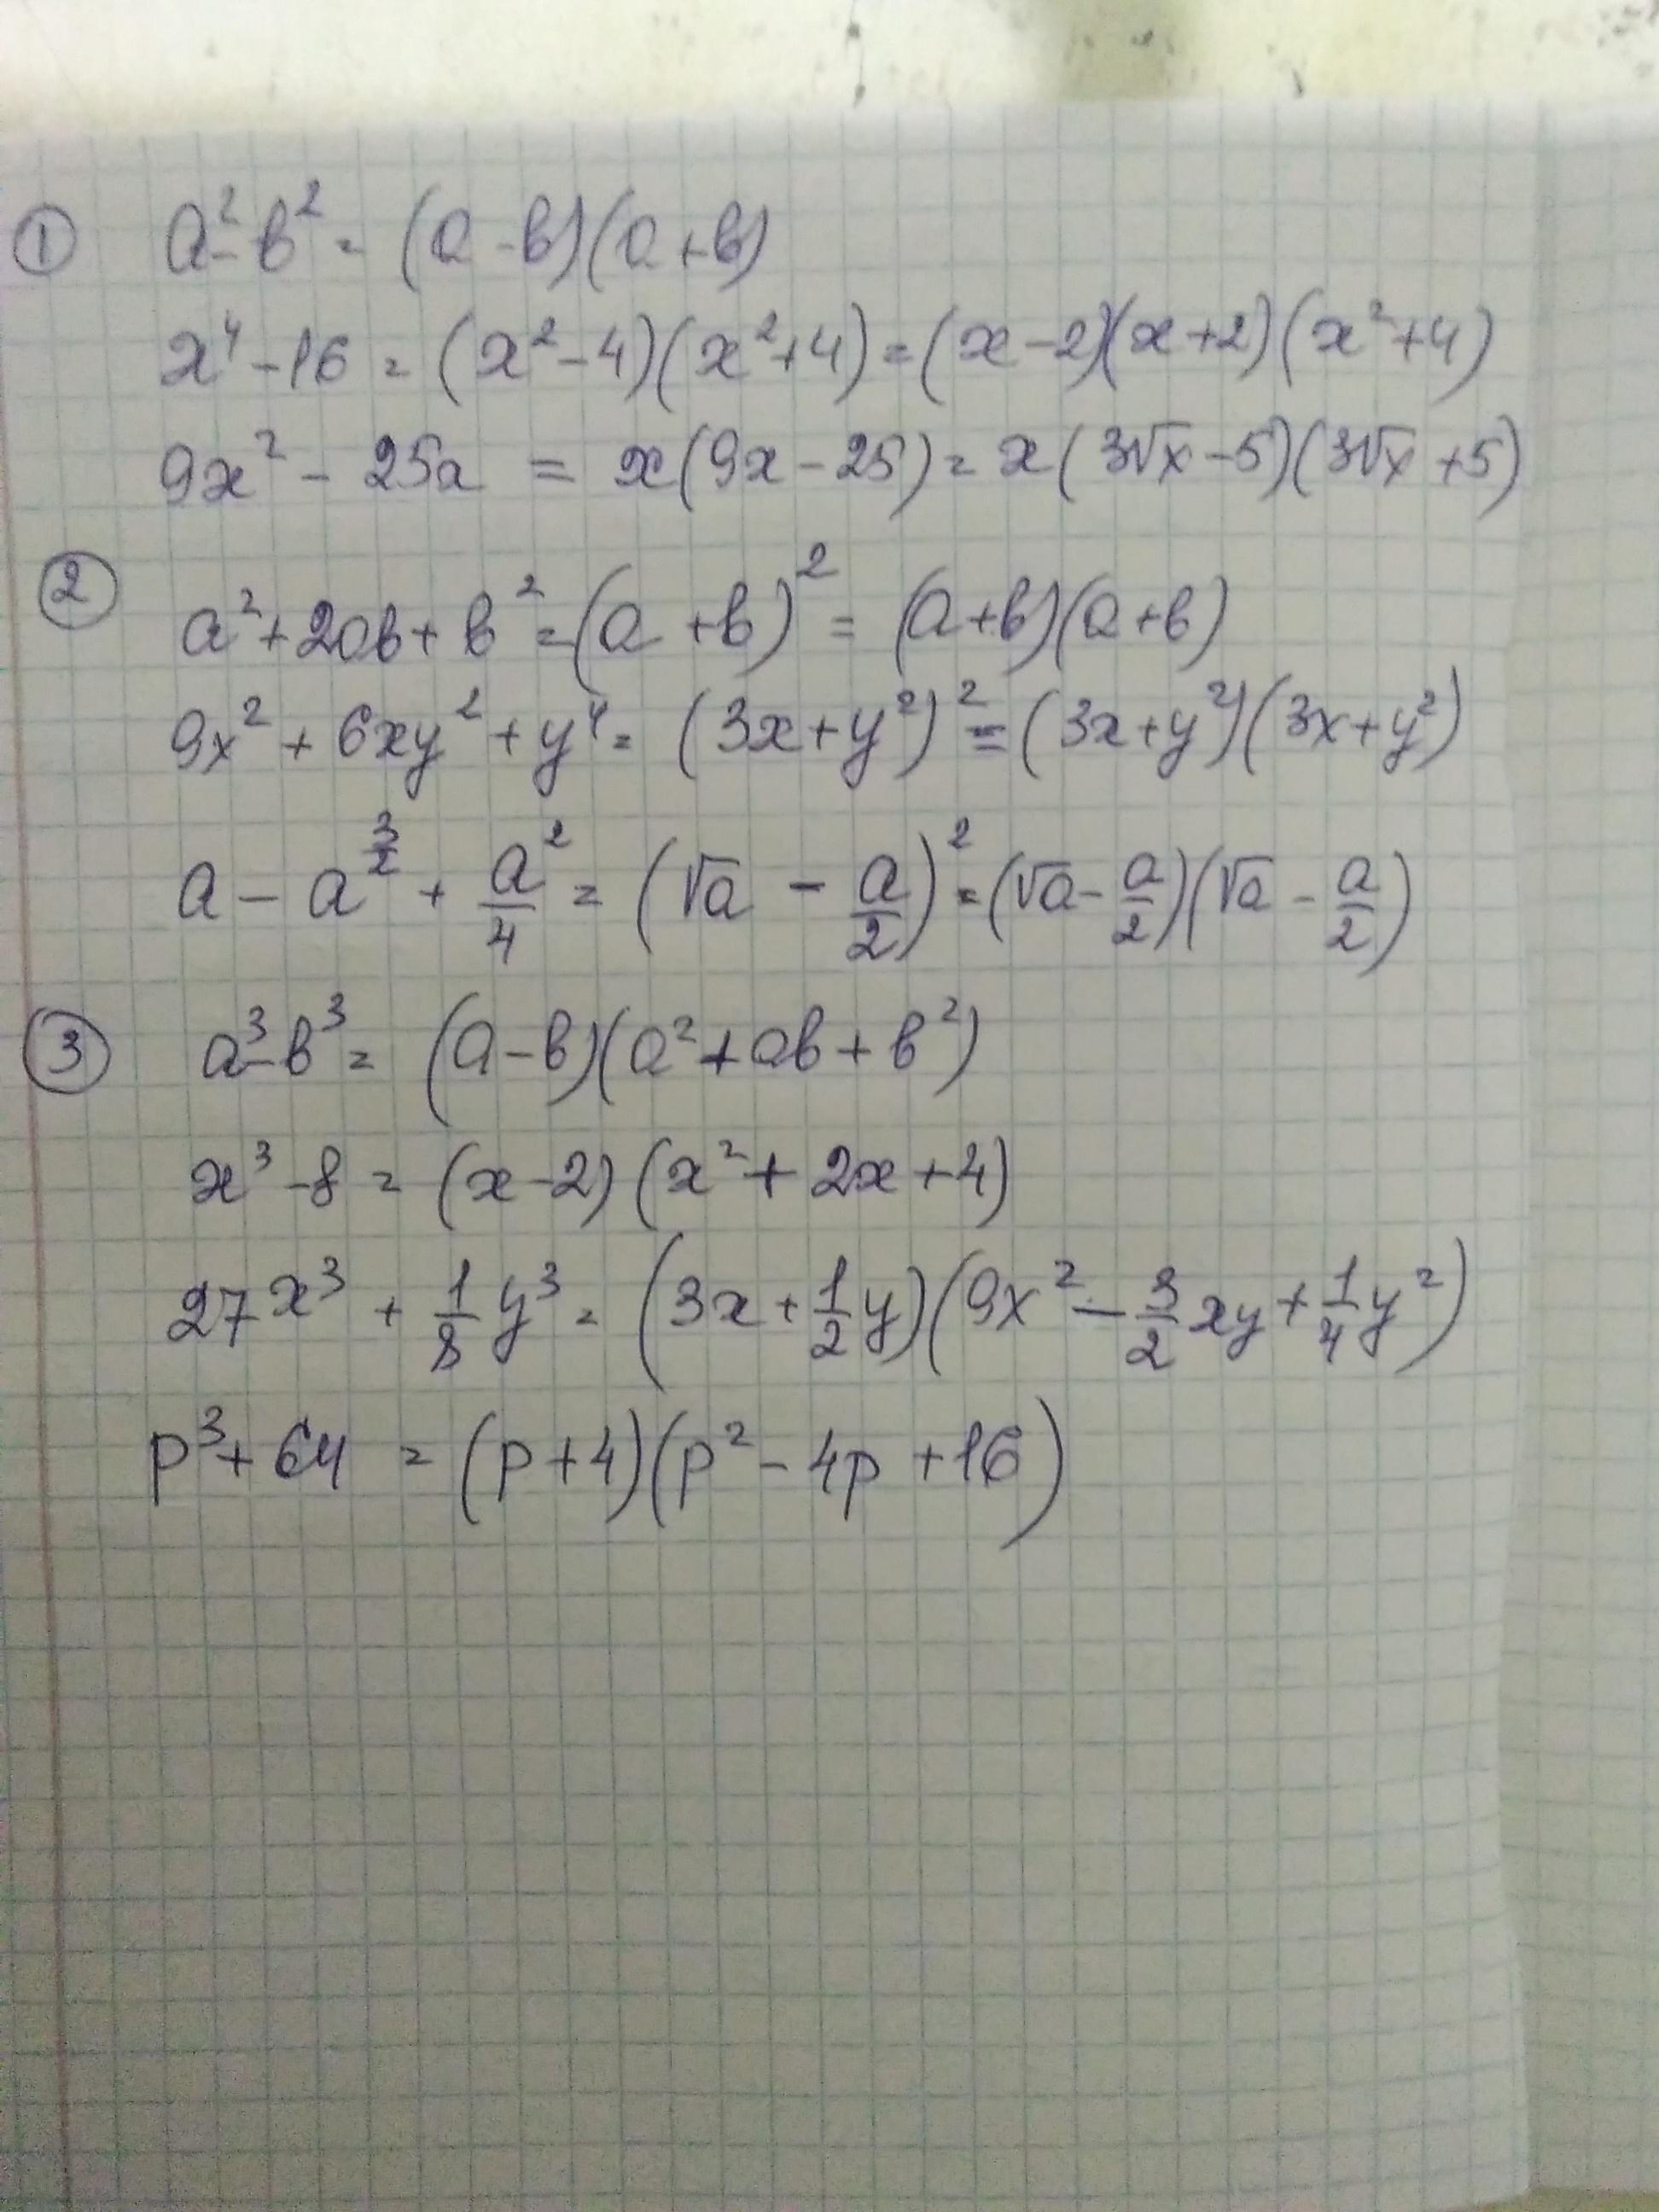 ① a² - b² = (a - b)(a + b)
x⁴ - 16 = (x² - 4)(x² + 4) = (x - 2)(x + 2)(x² + 4)
9x² - 25x = x(9x - 25) = x(3√x - 5)(3√x + 5)
② a² + 2ab + b² = (a + b)² = (a + b)(a + b)
9x² + 6xy² + y⁴ = (3x + y²)² = (3x + y²)(3x + y²)
a - a^(3/2) + a²/4 = (√a - a/2)² = (√a - a/2)(√a - a/2)
③ a³ - b³ = (a - b)(a² + ab + b²)
x³ - 8 = (x - 2)(x² + 2x + 4)
27x³ + 1/8 y³ = (3x + 1/2 y)(9x² - 3/2 xy + 1/4 y²)
p³ + 64 = (p + 4)(p² - 4p + 16)